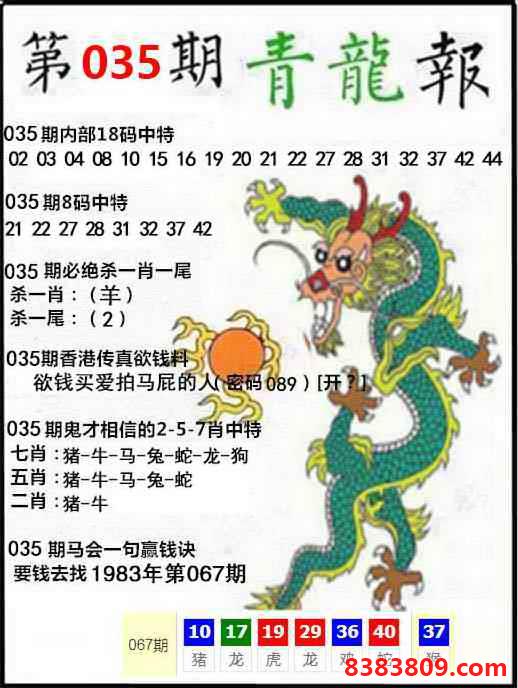 第035期青龍報
035期内部18码中特
02 03 04 08 10 15 16 19 20 21 22 27 28 31 32 37 42 44
035期8码中特
21 22 27 28 31 32 37 42
035 期必绝杀一肖一尾
杀一肖：（羊）
杀一尾：（2）
035期香港传真欲钱料
欲钱买爱拍马屁的人（密码 089）[开？]
035期鬼才相信的2-5-7肖中特
七肖：猪-牛-马-兔-蛇-龙-狗
五肖：猪-牛-马-兔-蛇
二肖：猪-牛
035 期马会一句赢钱诀
要钱去找1983年第067期
067期 10 17 19 29 36 40 37
猪 龙 虎 龙 鸡 蛇 猴
8383809.com